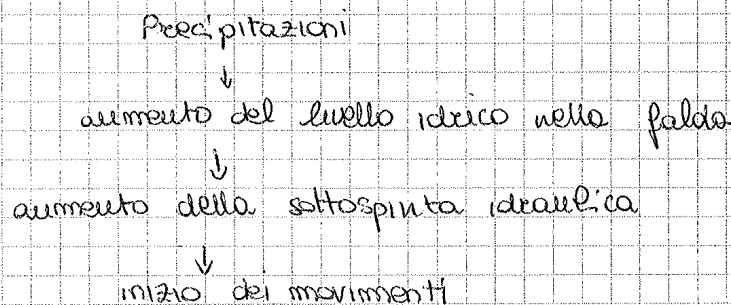 Precipitazioni
↓
aumento del livello idrico nella falda
↓
aumento della sottospinta idraulica
↓
inizio dei movimenti